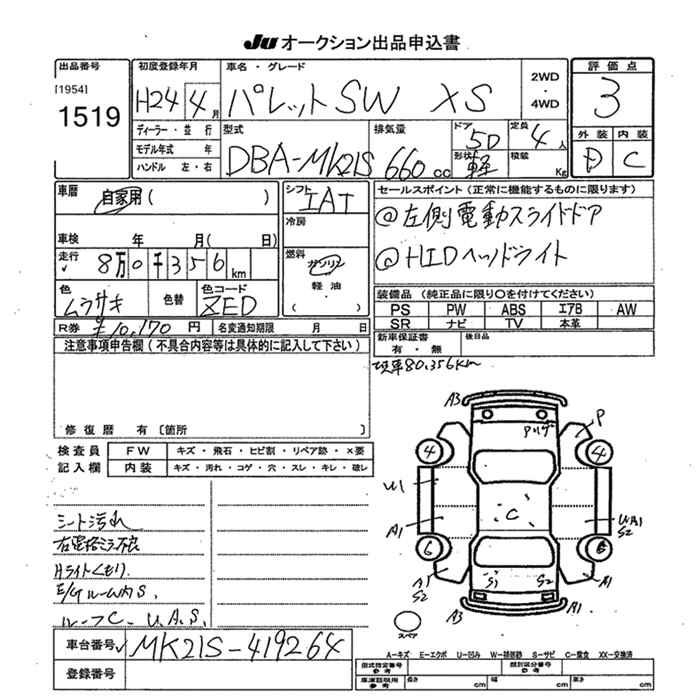 JU オークション出品申込書
出品番号
[1954]
1519
初度登録年月
H24 4月
車名・グレード
パレットSW XS
2WD
・
4WD
評価点
3
外装 内装
D C
ディーラー・並行
モデル年式 年
ハンドル 左・右
型式
DBA-MK21S
排気量
660cc
ドア
5D
形状
軽
定員
4人
積載
Kg
車歴
自家用( )
車検 年 月( 日)
走行
8万0千356km
色
ムラサキ
色替
色コード
ZED
シフト
IAT
冷房
燃料
ガソリン
軽油
( )
セールスポイント(正常に機能するものに限ります)
@左側電動スライドドア
@HIDヘッドライト
装備品(純正品に限り○を付けてください)
PS PW ABS エアB AW
SR ナビ TV 本革
R券 ¥10,170円
名変通知期限 月 日
新車保証書
有・無
後日品
注意事項申告欄(不具合内容等は具体的に記入して下さい)
現車80,356km
修復歴 有〔箇所 〕
検査員
記入欄
FW キズ・飛石・ヒビ割・リペア跡・×要
内装 キズ・汚れ・コゲ・穴・スレ・キレ・破レ
シート汚れ
右電格ミラー不良
Hライトくもり.
E/Gルーム内S.
ルーフC. U.A.S.
車台番号 MK21S-419264
登録番号
A3
P
4
4
U1
C
A1
UA1
S2
6
6
A1
S2
S1
S2
A1
A3
A1
スペア
A-キズ E-エクボ U-凹み W-補修跡 S-サビ C-腐食 XX-交換済
型式指定番号
参考
類別区分番号
参考
車庫証明用
参考
長さ cm
幅 cm
高さ cm